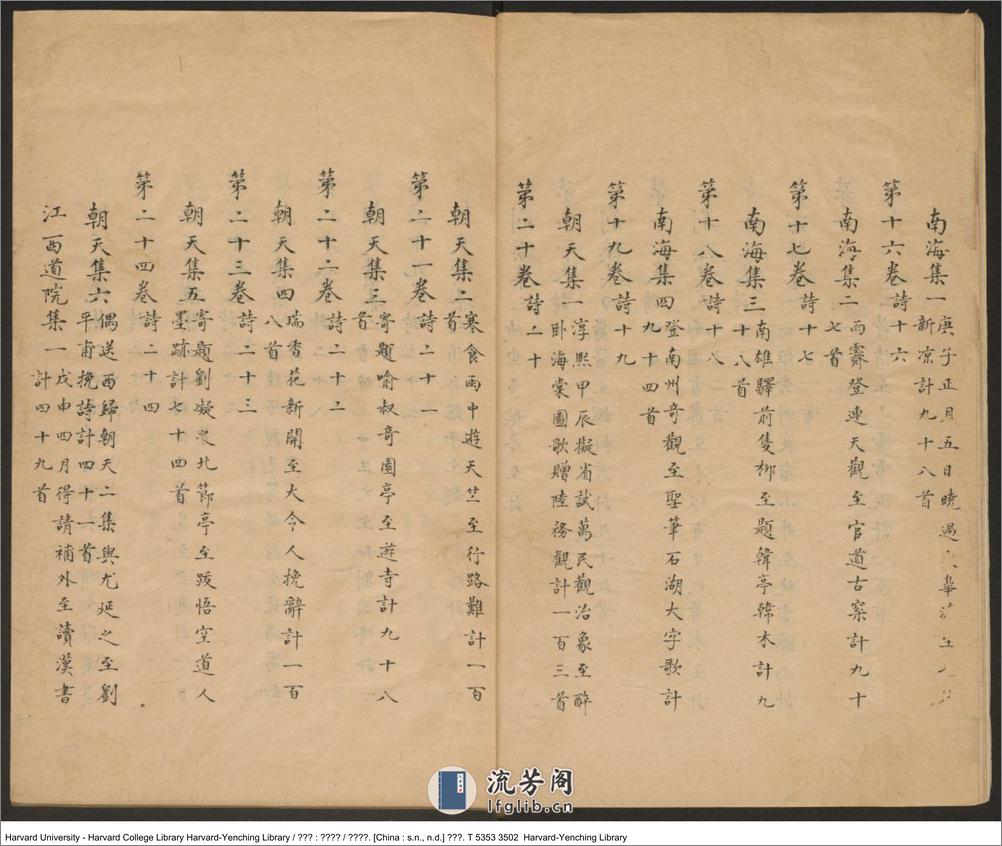 南海集一庚子正月五日曉過
新涼計九十八首
第十六卷詩十六
南海集二雨霽登連天觀至官道古寀計九十
七首
第十七卷詩十七
南海集三南雄驛前隻柳至題韓亭韓木計九
十八首
第十八卷詩十八
南海集四登南州奇觀至聖筆石湖大字歌計
九十四首
第十九卷詩十九
朝天集一淳熙甲辰擬省試萬民觀治象至醉
卧海棠圖歌贈陸務觀計一百三首
第二十卷詩二十
朝天集二寒食雨中遊天竺至行路難計一百
首
第二十一卷詩二十一
朝天集三寄題喻叔奇園亭至遊寺計九十八
首
第二十二卷詩二十二
朝天集四瑞香花新開至大令人挽辭計一百
八首
第二十三卷詩二十三
朝天集五寄題劉凝之北節亭至跋悟空道人
墨跡計七十四首
第二十四卷詩二十四
朝天集六偶送西歸朝天二集與尤延之至劉
平甫挽詩計四十一首
江西道院集一戊申四月得請補外至讀漢書
計四十九首
流芳阁
lfglib.cn
Harvard University - Harvard College Library Harvard-Yenching Library / ??? : ???? / ????. [China : s.n., n.d.] ???. T 5353 3502 Harvard-Yenching Library